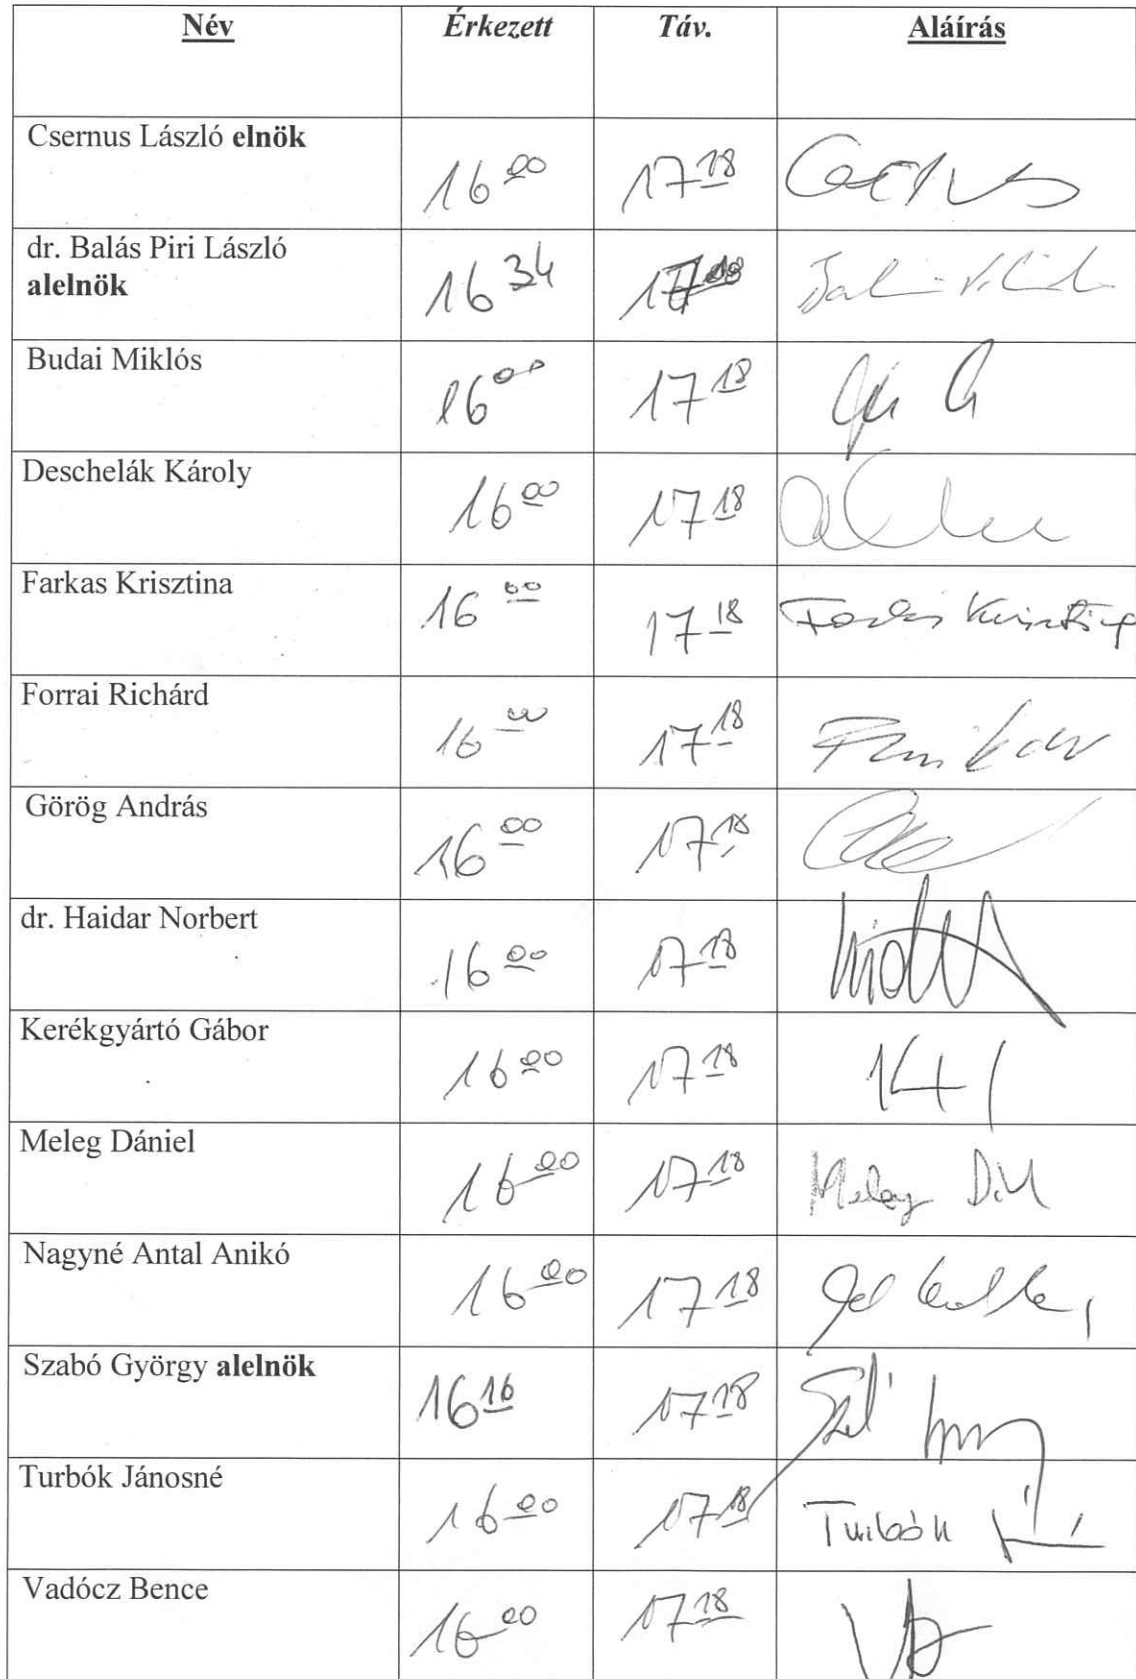 Név Érkezett Táv. Aláírás
Csernus László elnök 16 00 17 18
dr. Balás Piri László 16 34 17 18
alelnök
Budai Miklós 16 00 17 18
Deschelák Károly 16 00 17 18
Farkas Krisztina 16 00 17 18 Farkas Krisztina
Forrai Richárd 16 00 17 18
Görög András 16 00 17 18
dr. Haidar Norbert 16 00 17 18
Kerékgyártó Gábor 16 00 17 18
Meleg Dániel 16 00 17 18 Meleg
Nagyné Antal Anikó 16 00 17 18
Szabó György alelnök 16 16 17 18
Turbók Jánosné 16 00 17 18 Turbók
Vadócz Bence 16 00 17 18